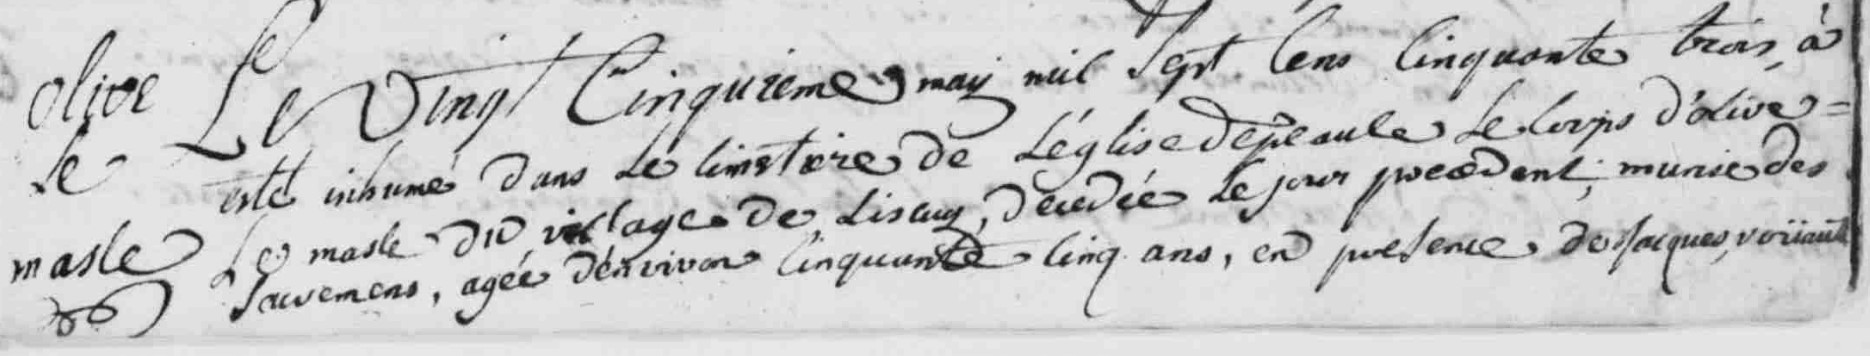 olive
le
masle
Le Vingt Cinquieme may mil Sept Cens Cinquante trois, à
esté inhumé dans Le Cimetiere de L'église de peaule Le Corps d'olive =
Le masle du village de Liscuy, decedée Le jour precedent, munie des
Sacremens, agée d'environ Cinquante cinq ans, en presence de Jacques,